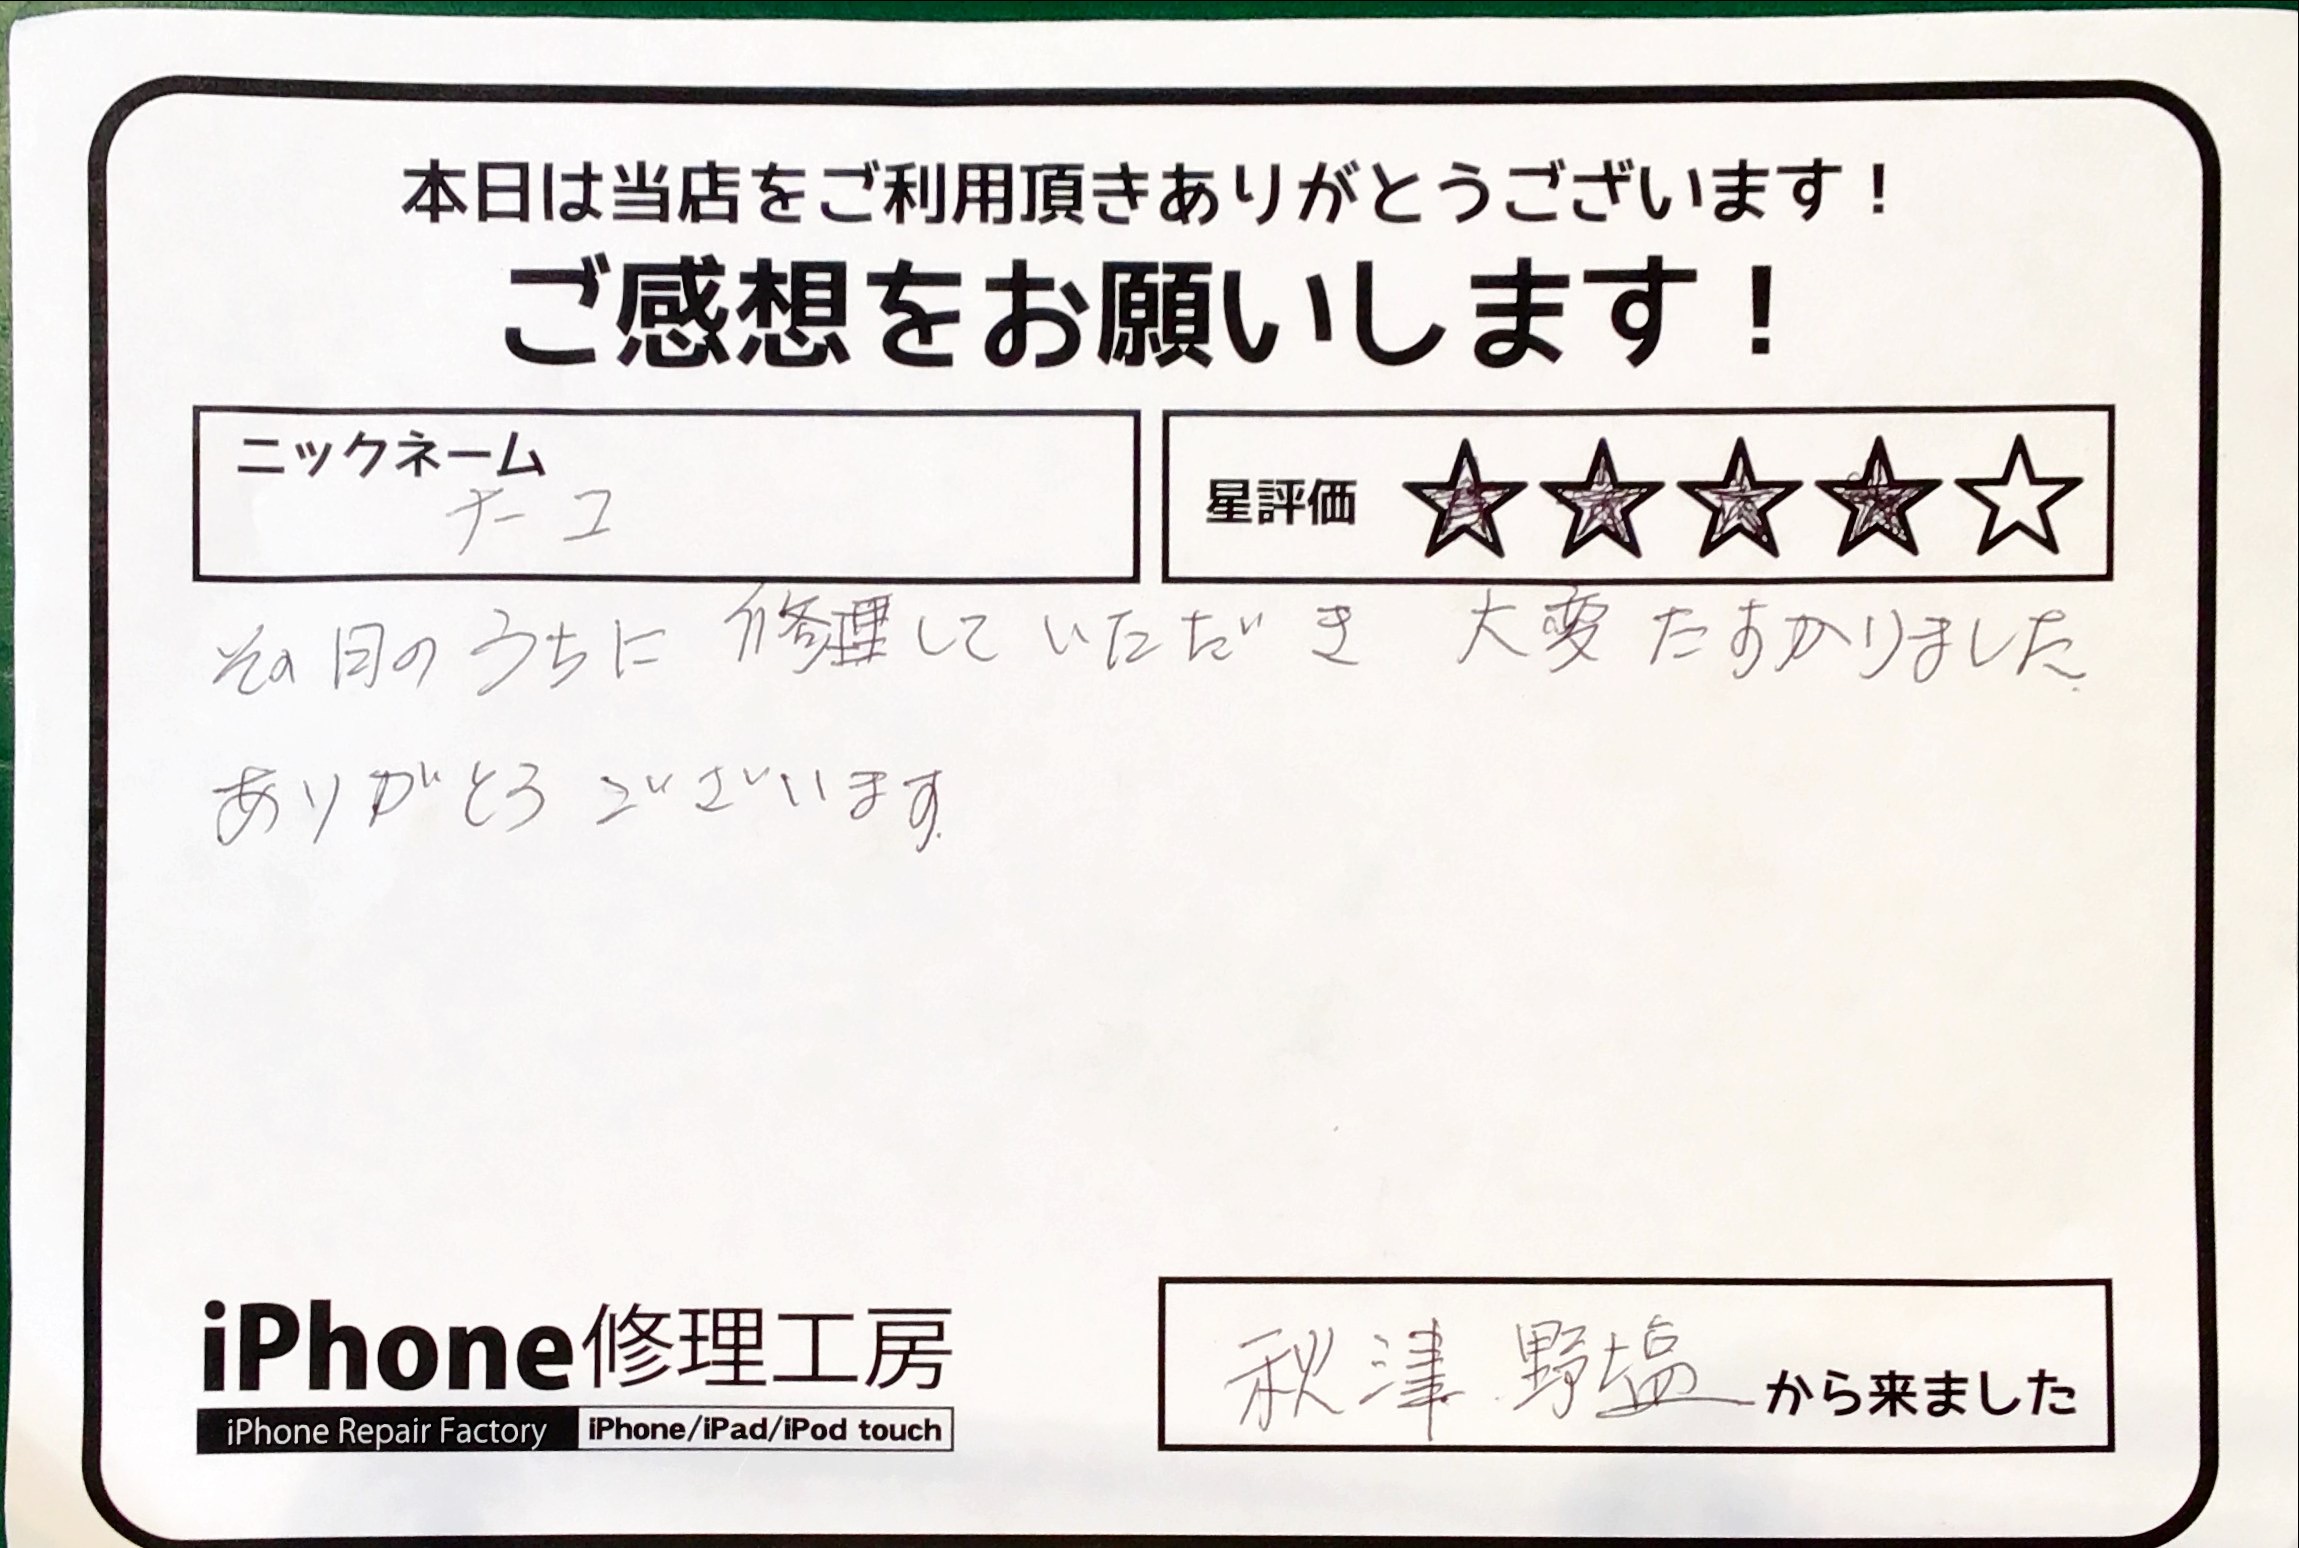 本日は当店をご利用頂きありがとうございます！
ご感想をお願いします！
ニックネーム
チーコ
星評価 ★★★★☆
その日のうちに修理していただき 大変たすかりました。
ありがとうございます。
iPhone修理工房
iPhone Repair Factory iPhone/iPad/iPod touch
秋津 野塩から来ました